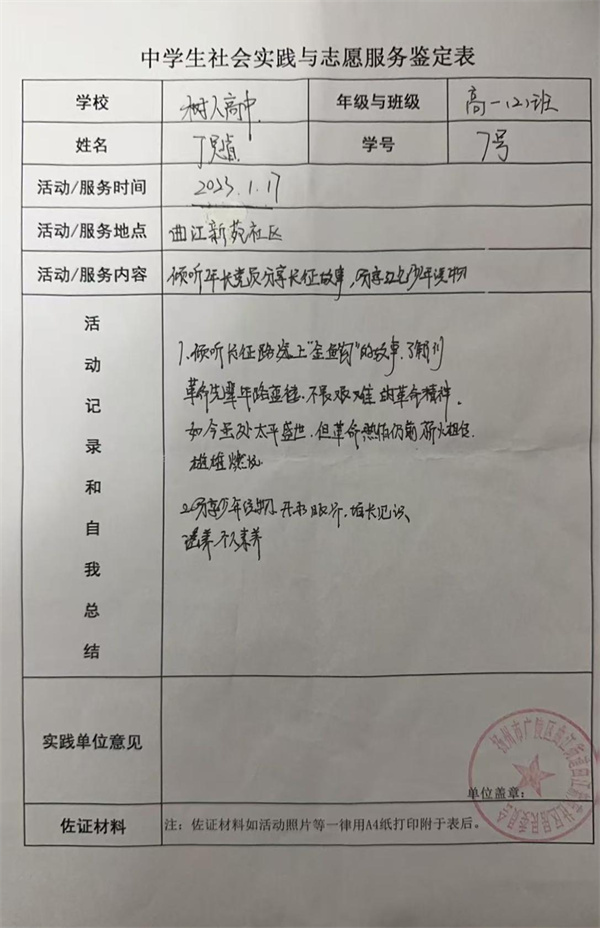 中学生社会实践与志愿服务鉴定表
学校 树人高中 年级与班级 高一(2)班
姓名 丁 学号 7号
活动/服务时间 2023.1.17
活动/服务地点 曲江新苑社区
活动/服务内容 倾听年长党员分享长征故事,分享红色少年读物
活动记录和自我总结
1. 倾听长征路途上"金鱼钩"的故事,了解到
革命先辈 不畏艰难 的革命精神。
如今虽处太平盛世,但革命热情仍需薪火相传
雄雄燃烧
2.分享少年读物,开拓眼界,增长见识
培养个人素养
实践单位意见
单位盖章:
扬州市广陵区曲江街道曲江新苑社区居民委员会
佐证材料 注:佐证材料如活动照片等一律用A4纸打印附于表后。